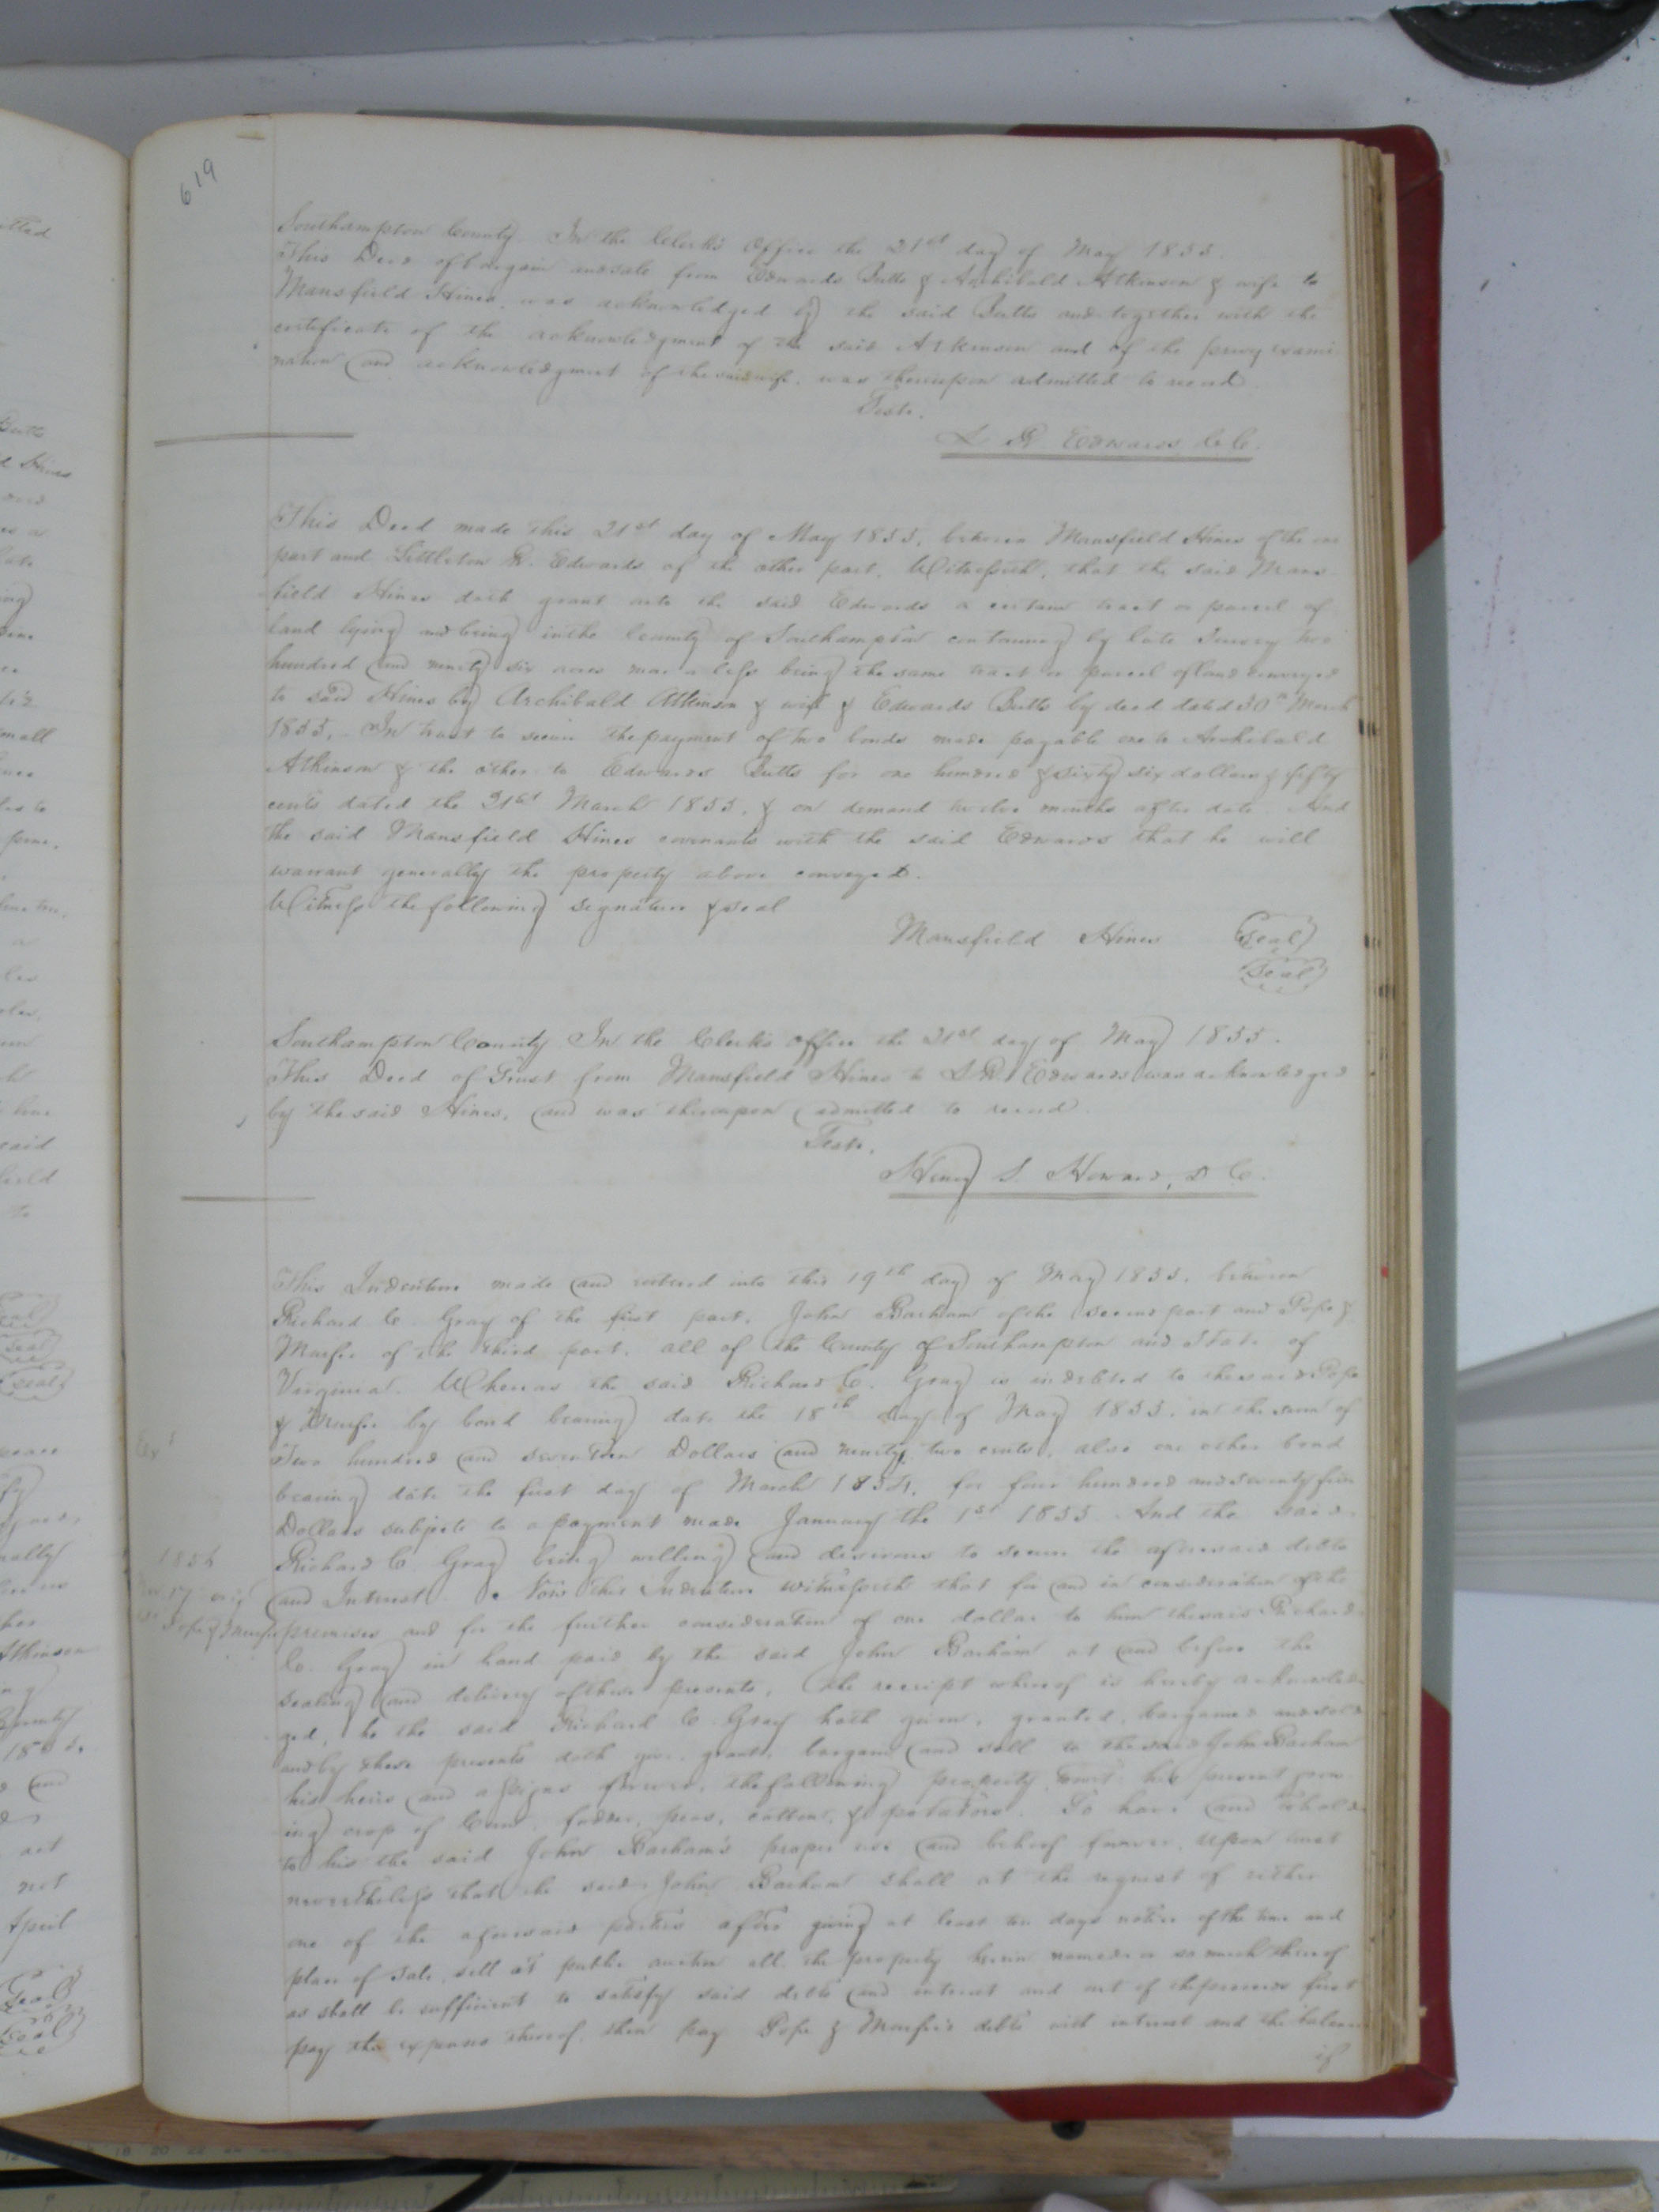 619
Southampton County. In the Clerks Office the 21st day of May 1855.
This Deed of bargain and sale from Edwards Butts & Archibald Atkinson & wife to
Mansfield Hines, was acknowledged by the said Butts and together with the
certificate of the acknowledgment of the said Atkinson and of the privy exami-
nation and acknowledgment of the said wife, was thereupon admitted to record.
Teste.
L R Edwards C.C.
This Deed made this 21st day of May 1855, between Mansfield Hines of the one
part and Littleton R. Edwards of the other part, Witnesseth, that the said Mans-
field Hines doth grant unto the said Edwards a certain tract or parcel of
land lying and being in the County of Southampton containing by late Survey two
hundred and ninety six acres more or less being the same tract or parcel of land conveyed
to said Hines by Archibald Atkinson & wife & Edwards Butts by deed dated 30th March
1855,- In trust to secure the payment of two bonds made payable one to Archibald
Atkinson & the other to Edwards Butts for one hundred & sixty six dollars & fifty
cents dated the 31st March 1855, & on demand twelve months after date. And
the said Mansfield Hines covenants with the said Edwards that he will
warrant generally the property above conveyed.
Witness the following signature & seal
Mansfield Hines Seal
Seal
Southampton County. In the Clerks Office the 21st day of May 1855.
This Deed of Trust from Mansfield Hines to L. R. Edwards was acknowledged
by the said Hines, and was thereupon admitted to record.
Teste.
Henry S. Howard, D C.
This Indenture made and entered into this 19th day of May 1855, between
Richard C. Gray of the first part, John Barham of the second part and Pope &
Murfee of the third part, all of the County of Southampton and State of
Virginia. Whereas the said Richard C. Gray is indebted to the said Pope
& Murfee by bond bearing date the 18th day of May 1855, in the sum of
Two hundred and seventeen Dollars and ninety two cents, also one other bond
bearing date the first day of March 1854, for four hundred and
Dollars subject to a payment made January the 1st 1855. And the said
Richard C. Gray being willing and desirous to secure the aforesaid debts
and Interest. Now this Indenture witnesseth that for and in consideration of the
1856
Pope & Murfee
premises and for the further consideration of one dollar to him the said Richard
C. Gray in hand paid by the said John Barham at and before the
sealing and delivery of these presents, the receipt whereof is hereby acknowled-
ged, he the said Richard C. Gray hath given, granted, bargained and sold
and by these presents doth give, grant, bargain and sell to the said John Barham
his heirs and assigns forever, the following property, his present grow-
ing crop of Corn, fodder, peas, cotton, & potatoes. To have and to hold
to his the said John Barham's proper use and behoof forever. Upon trust
nevertheless that the said John Barham shall at the request of either
one of the aforesaid parties after giving at least ten days notice of the time and
place of sale, sell at public auction all the property herein named or so much thereof
as shall be sufficient to satisfy said debts and interest and out of the proceeds first
pay the expenses thereof, then pay Pope & Murfee's debts with interest and the balance
if